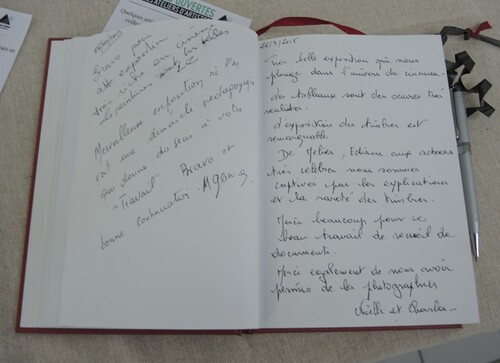 COUVERTES
ATELIERS D'ARTISTES
Bravo pour
cette exposition
très riche en cinéma
les peintures sont très belles
Merveilleuse exposition, où l'on
voit une démarche pédagogique
qui donne du sens à votre
"Travail". Bravo et
bonne continuation.
26/9/2015
Très belle exposition qui nous
plonge dans l'univers du cinéma.
Les tableaux sont des oeuvres très
réalistes.
L'exposition des timbres est
remarquable
De Melies, Edison aux acteurs
très célèbres nous sommes
captivés par les explications
et la rareté des timbres.
Merci beaucoup pour ce
beau travail de recueil de
documents.
Merci également de nous avoir
permis de les photographier
Noëlle et Charles